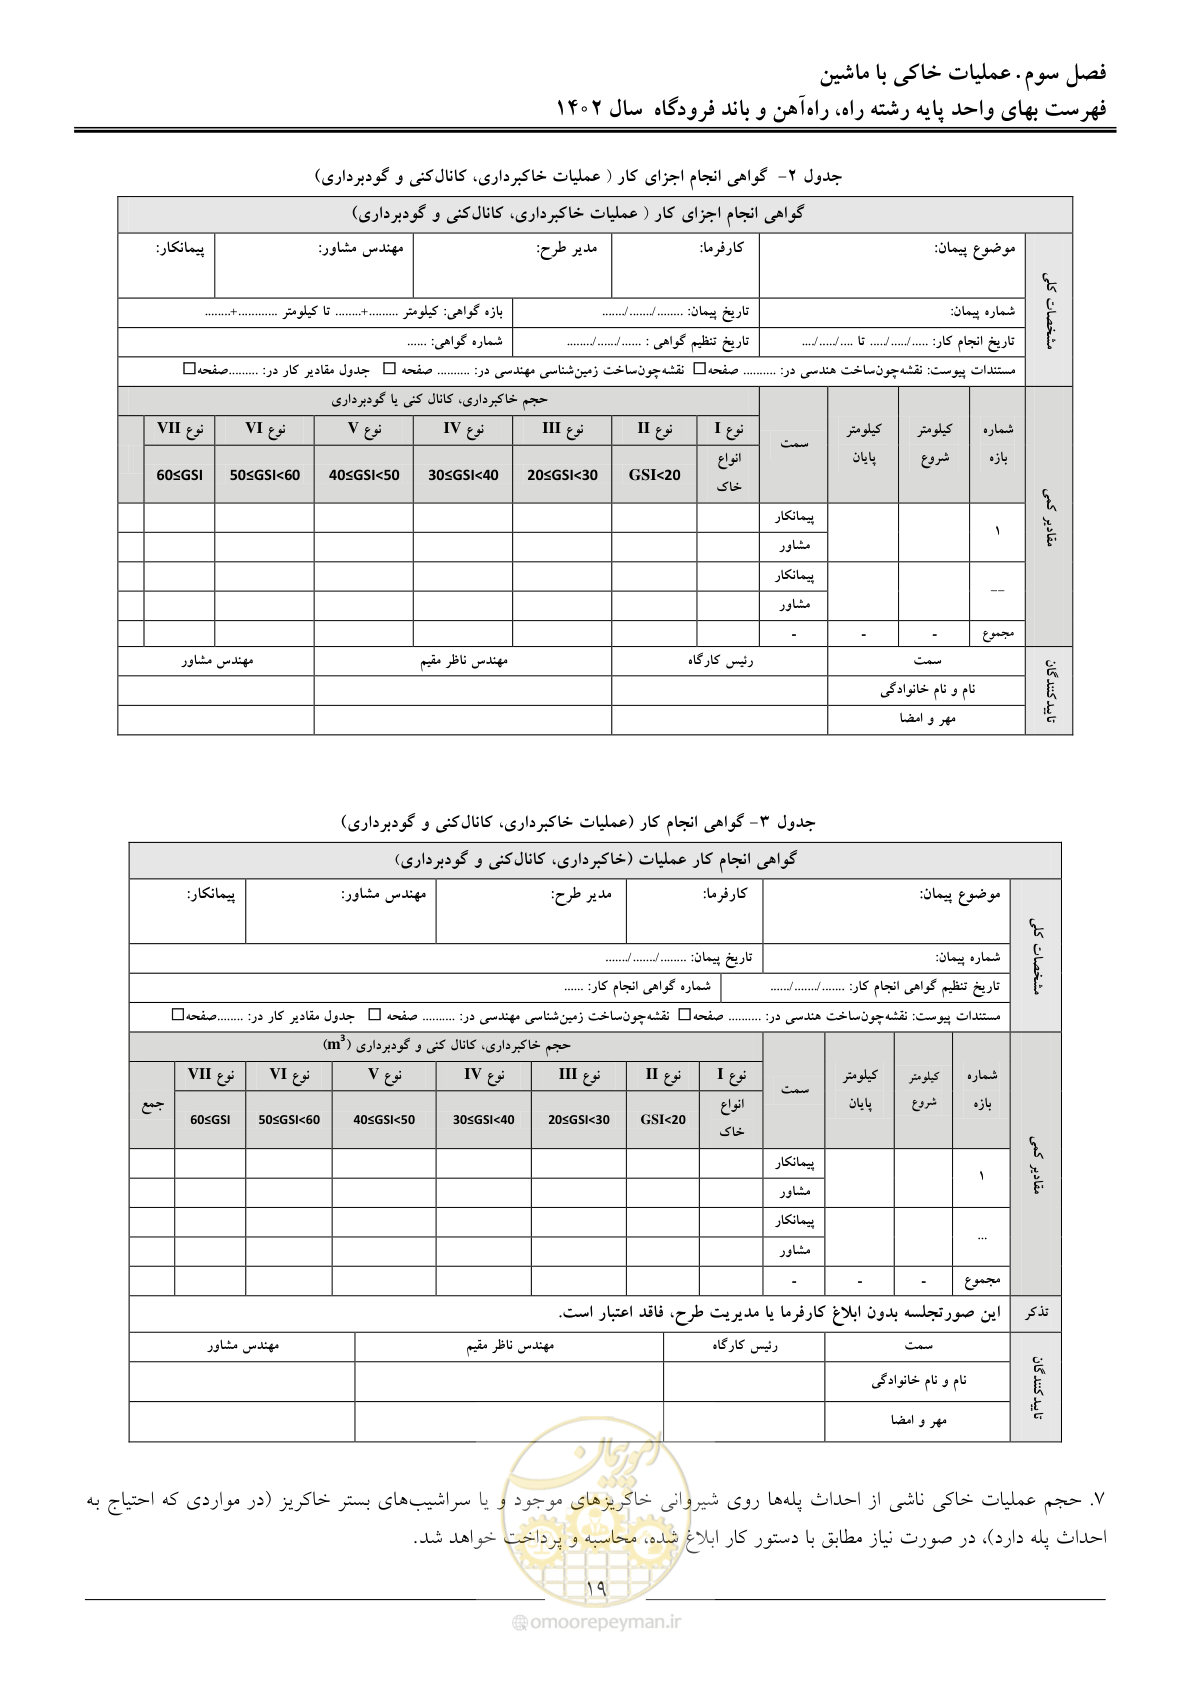 فصل سوم. عملیات خاکی با ماشین
فهرست بهای واحد پایه رشته راه، راه‌آهن و باند فرودگاه سال ۱۴۰۲
جدول ۲- گواهی انجام اجزای کار ( عملیات خاکبرداری، کانال‌کنی و گودبرداری)
گواهی انجام اجزای کار ( عملیات خاکبرداری، کانال‌کنی و گودبرداری)
مشخصات کلی
موضوع پیمان: کارفرما: مدیر طرح: مهندس مشاور: پیمانکار:
شماره پیمان: تاریخ پیمان: ......../......./....... بازه گواهی: کیلومتر .........+........ تا کیلومتر ............+........
تاریخ انجام کار: ...../...../..... تا ..../...../.... تاریخ تنظیم گواهی : ....../....../........ شماره گواهی: ......
مستندات پیوست: نقشه‌چون‌ساخت هندسی در: .......... صفحه☐ نقشه‌چون‌ساخت زمین‌شناسی مهندسی در: .......... صفحه ☐ جدول مقادیر کار در: .........صفحه☐
مقادیر کمی
شماره بازه کیلومتر شروع کیلومتر پایان سمت حجم خاکبرداری، کانال کنی یا گودبرداری
نوع I نوع II نوع III نوع IV نوع V نوع VI نوع VII
انواع خاک GSI<20 20≤GSI<30 30≤GSI<40 40≤GSI<50 50≤GSI<60 60≤GSI
۱ پیمانکار
مشاور
__ پیمانکار
مشاور
مجموع - - -
تاییدکنندگان
سمت رئیس کارگاه مهندس ناظر مقیم مهندس مشاور
نام و نام خانوادگی
مهر و امضا
جدول ۳- گواهی انجام کار (عملیات خاکبرداری، کانال‌کنی و گودبرداری)
گواهی انجام کار عملیات (خاکبرداری، کانال‌کنی و گودبرداری)
مشخصات کلی
موضوع پیمان: کارفرما: مدیر طرح: مهندس مشاور: پیمانکار:
شماره پیمان: تاریخ پیمان: ......../......./.......
تاریخ تنظیم گواهی انجام کار: ......./......./...... شماره گواهی انجام کار: ......
مستندات پیوست: نقشه‌چون‌ساخت هندسی در: .......... صفحه☐ نقشه‌چون‌ساخت زمین‌شناسی مهندسی در: .......... صفحه ☐ جدول مقادیر کار در: ........صفحه☐
مقادیر کمی
شماره بازه کیلومتر شروع کیلومتر پایان سمت حجم خاکبرداری، کانال کنی و گودبرداری (m³)
نوع I نوع II نوع III نوع IV نوع V نوع VI نوع VII جمع
انواع خاک GSI<20 20≤GSI<30 30≤GSI<40 40≤GSI<50 50≤GSI<60 60≤GSI
۱ پیمانکار
مشاور
... پیمانکار
مشاور
مجموع - - -
تذکر این صورتجلسه بدون ابلاغ کارفرما یا مدیریت طرح، فاقد اعتبار است.
تاییدکنندگان
سمت رئیس کارگاه مهندس ناظر مقیم مهندس مشاور
نام و نام خانوادگی
مهر و امضا
امور پیمان
۷. حجم عملیات خاکی ناشی از احداث پله‌ها روی شیروانی خاکریزهای موجود و یا سراشیب‌های بستر خاکریز (در مواردی که احتیاج به
احداث پله دارد)، در صورت نیاز مطابق با دستور کار ابلاغ شده، محاسبه و پرداخت خواهد شد.
۱۹
omoorepeyman.ir